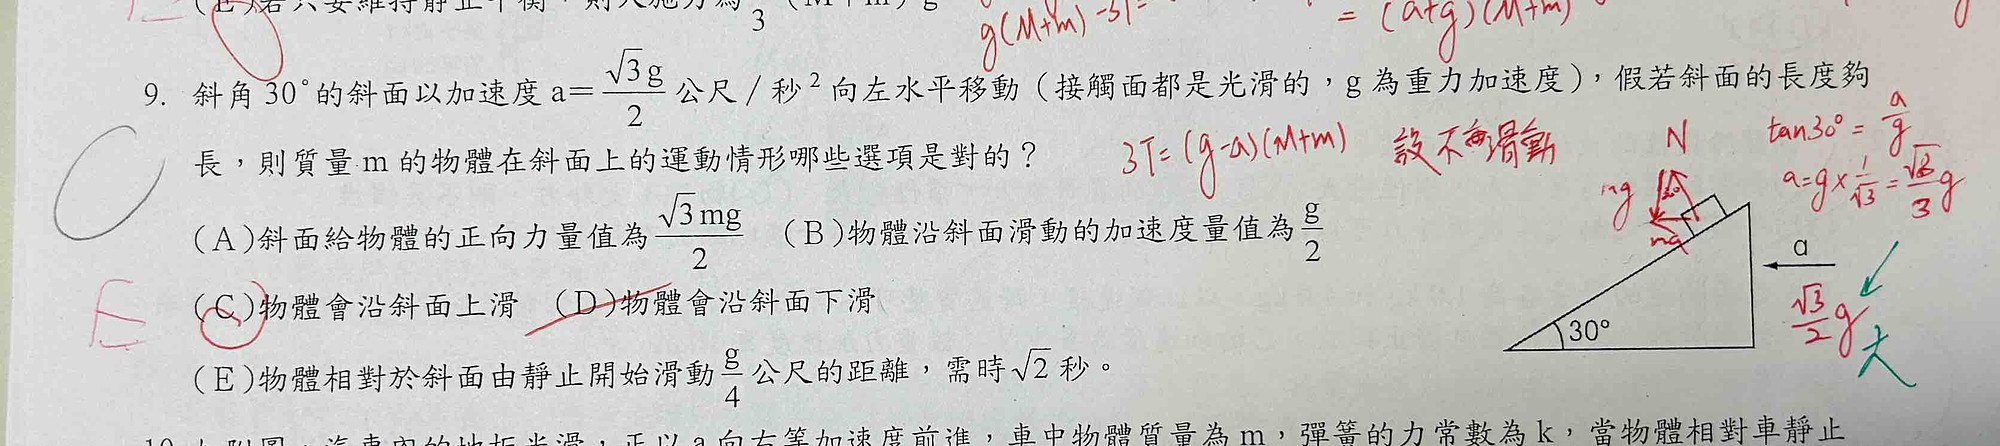 (E)若只要維持靜止平衡，則人施力為 3 (M+m) g
g(M+m) -3T=
= (a+g)(M+m)
9. 斜角 30°的斜面以加速度 a=√3g/2 公尺／秒² 向左水平移動（接觸面都是光滑的，g 為重力加速度），假若斜面的長度夠
長，則質量 m 的物體在斜面上的運動情形哪些選項是對的？
3T=(g-a)(M+m)
設不會滑動
tan30°= a/g
a=g×1/√3=√3/3 g
(A)斜面給物體的正向力量值為√3mg/2 (B)物體沿斜面滑動的加速度量值為g/2
(C)物體會沿斜面上滑 (D)物體會沿斜面下滑
(E)物體相對於斜面由靜止開始滑動g/4公尺的距離，需時√2 秒。
C
E
N
mg
ma
a
√3/2 g
大
30°
10. 如附圖，汽車內的地板光滑，正以 a 向右等加速度前進，車中物體質量為 m，彈簧的力常數為 k，當物體相對車靜止